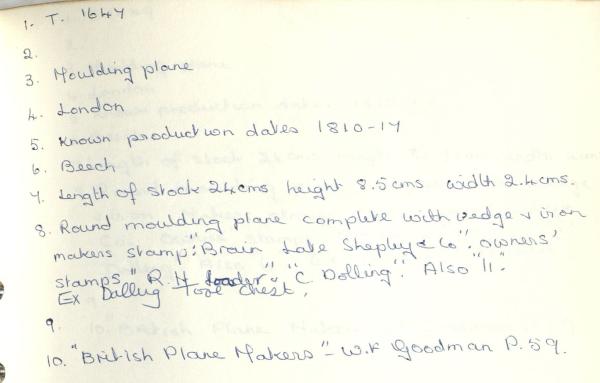 1. T. 1647
2.
3. Moulding plane
4. London
5. Known production dates 1810-17
6. Beech
7. Length of stock 24cms height 8.5cms width 2.4cms.
8. Round moulding plane complete with wedge & iron
makers stamp: "Brain Late Shepley & Co". owners'
stamps "R. H Loader" "C Dolling". Also "11".
Ex Dalling Tool Chest.
9.
10. "British Plane Makers" - W.K Goodman P.59.